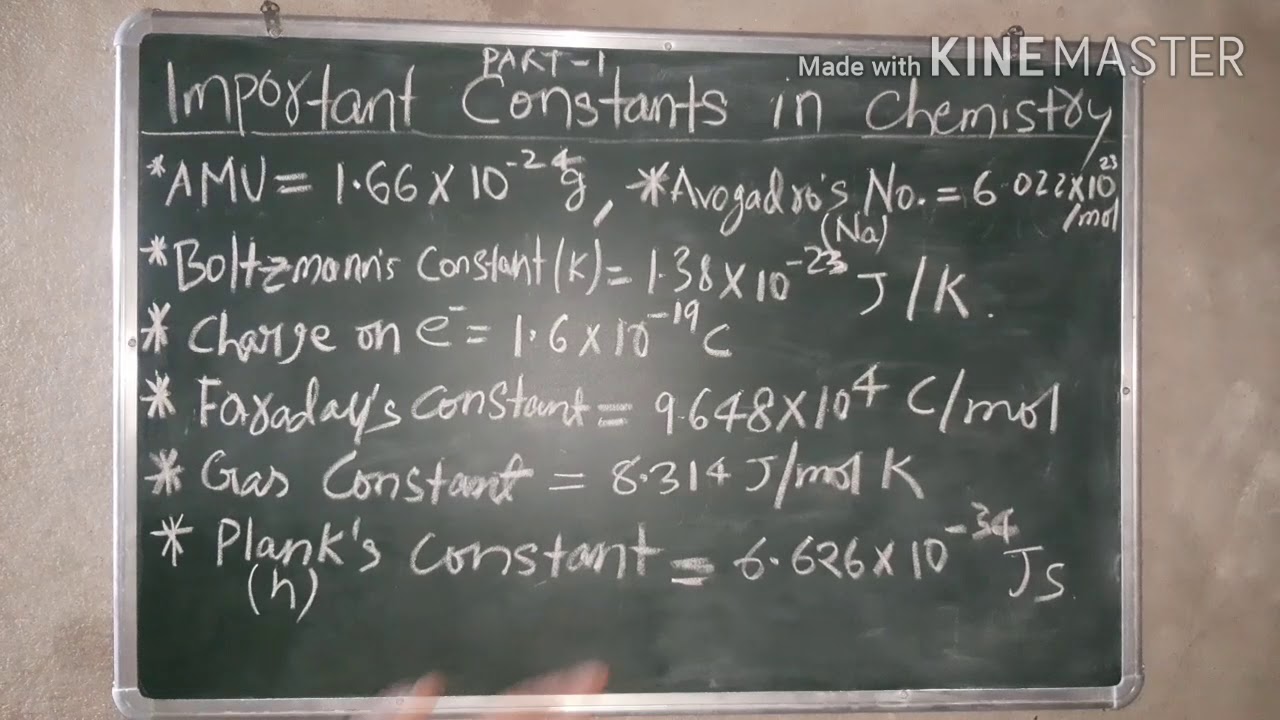 Made with KINEMASTER
PART-1
Important Constants in Chemistry
*AMU = 1.66 X 10⁻²⁴ g, *Avogadro's No. = 6.022X10²³
(Na) /mol
*Boltzmann's Constant (K) = 1.38 X 10⁻²³ J/K.
* Charge on e⁻ = 1.6 X 10⁻¹⁹ C
* Faraday's Constant = 9.648X10⁴ C/mol
* Gas Constant = 8.314 J/mol K
* Plank's Constant = 6.626 X 10⁻³⁴ Js
(h)